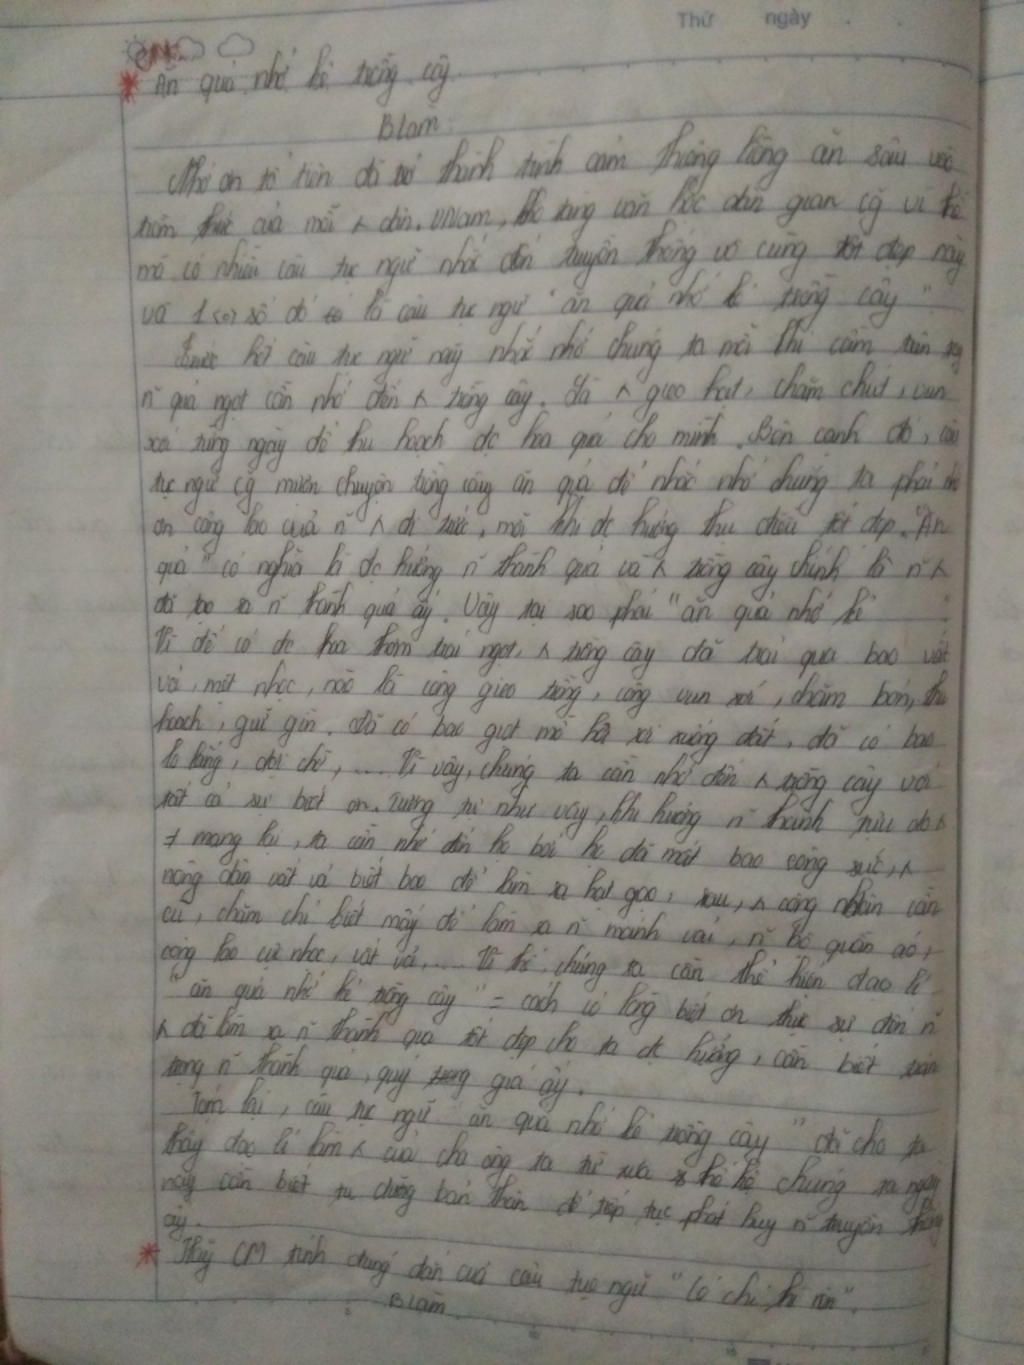 Thứ ngày
CM:
* Ăn quả nhớ kẻ trồng cây
BLàm
Nhớ ơn tổ tiên đã trở thành tình cảm thiêng liêng ăn sâu vào
tiềm thức của mỗi ^ dân. VNam, kho tàng văn học dân gian cg vì thế
mà có nhiều câu tục ngữ nhắc đến truyền thống vô cùng tốt đẹp này
và 1 số đó là câu tục ngữ " ăn quả nhớ kẻ trồng cây "
Trước hết câu tục ngữ này nhắc nhớ chúng ta mỗi khi cầm trên tay
n~ quả ngọt cần nhớ đến ^ trồng cây. Đã ^ gieo hạt, chăm chút, vun
xới từng ngày để thu hoạch đc hoa quả cho mình. Bên cạnh đó, câu
tục ngữ cg mượn chuyện trồng cây ăn quả để nhắc nhớ chúng ta phải nhớ
ơn công lao của n~ ^ đi trước, mỗi khi đc hưởng thụ điều tốt đẹp. "Ăn
quả " có nghĩa là đc hưởng n~ thành quả và ^ trồng cây chính là n~ ^
đã tạo ra n~ thành quả ấy. Vậy tại sao phải " ăn quả nhớ kẻ "
Vì để có đc hoa thơm trái ngọt, ^ trồng cây đã trải qua bao vất
vả, mệt nhọc, nào là công gieo trồng, công vun xới, chăm bón, thu
hoạch, giữ gìn. Đã có bao giọt mồ hôi rơi xuống đất, đã có bao
lo lắng, đợi chờ, .... Vì vậy, chúng ta cần nhớ đến ^ trồng cây với
tất cả sự biết ơn. Tương tự như vậy, khi hưởng n~ thành tựu do ^
≠ mang lại, ta cần nhớ đến họ bởi họ đã mất bao công sức, ^
nông dân vất vả biết bao để làm ra hạt gạo, rau, ^ công nhân cần
cù, chăm chỉ biết mấy để làm ra n~ mảnh vải, n~ bộ quần áo,
công lao cực nhọc, vất vả, .... Vì thế, chúng ta cần thể hiện đạo lí
" ăn quả nhớ kẻ trồng cây " = cách có lòng biết ơn thực sự đến n~
^ đã làm ra n~ thành quả tốt đẹp cho ta đc hưởng, cần biết trân
trọng n~ thành quả, quý giá ấy.
Tóm lại, câu tục ngữ " ăn quả nhớ kẻ trồng cây " đã cho ta
thấy đạo lí làm ^ của cha ông ta từ xưa thế hệ chúng ta ngày
nay cần biết tu dưỡng bản thân để tiếp tục phát huy n~ truyền thống
ấy.
* Hãy CM tính đúng đắn của câu tục ngữ " Có chí thì nên ".
BLàm